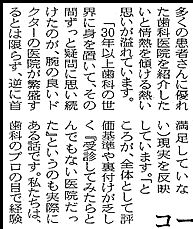 多くの患者さんに優れ
た歯科医院を紹介した
いと情熱を傾ける熱い
思いが溢れています。
「30年以上歯科の世
界に身を置いて、その
間ずっと疑問に思い続
けたのが、腕の良いド
クターの医院が繁盛す
るとは限らず、逆に首
満足していな
い』現実を反映
しています。
ころが、全体として評
価基準や裏付けが乏し
く『受診してみたらと
んでもない医院だっ
た』というのも実際に
ある話です。私たちは、
歯科のプロの目で経験
コー